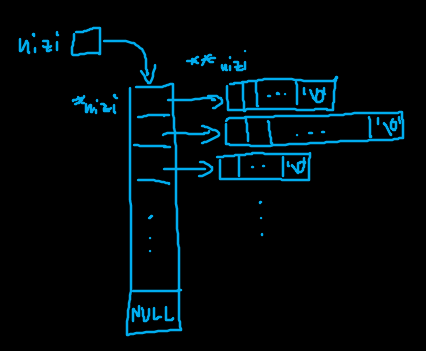 nizi
**nizi
*nizi
... '\0'
... '\0'
... '\0'
NULL